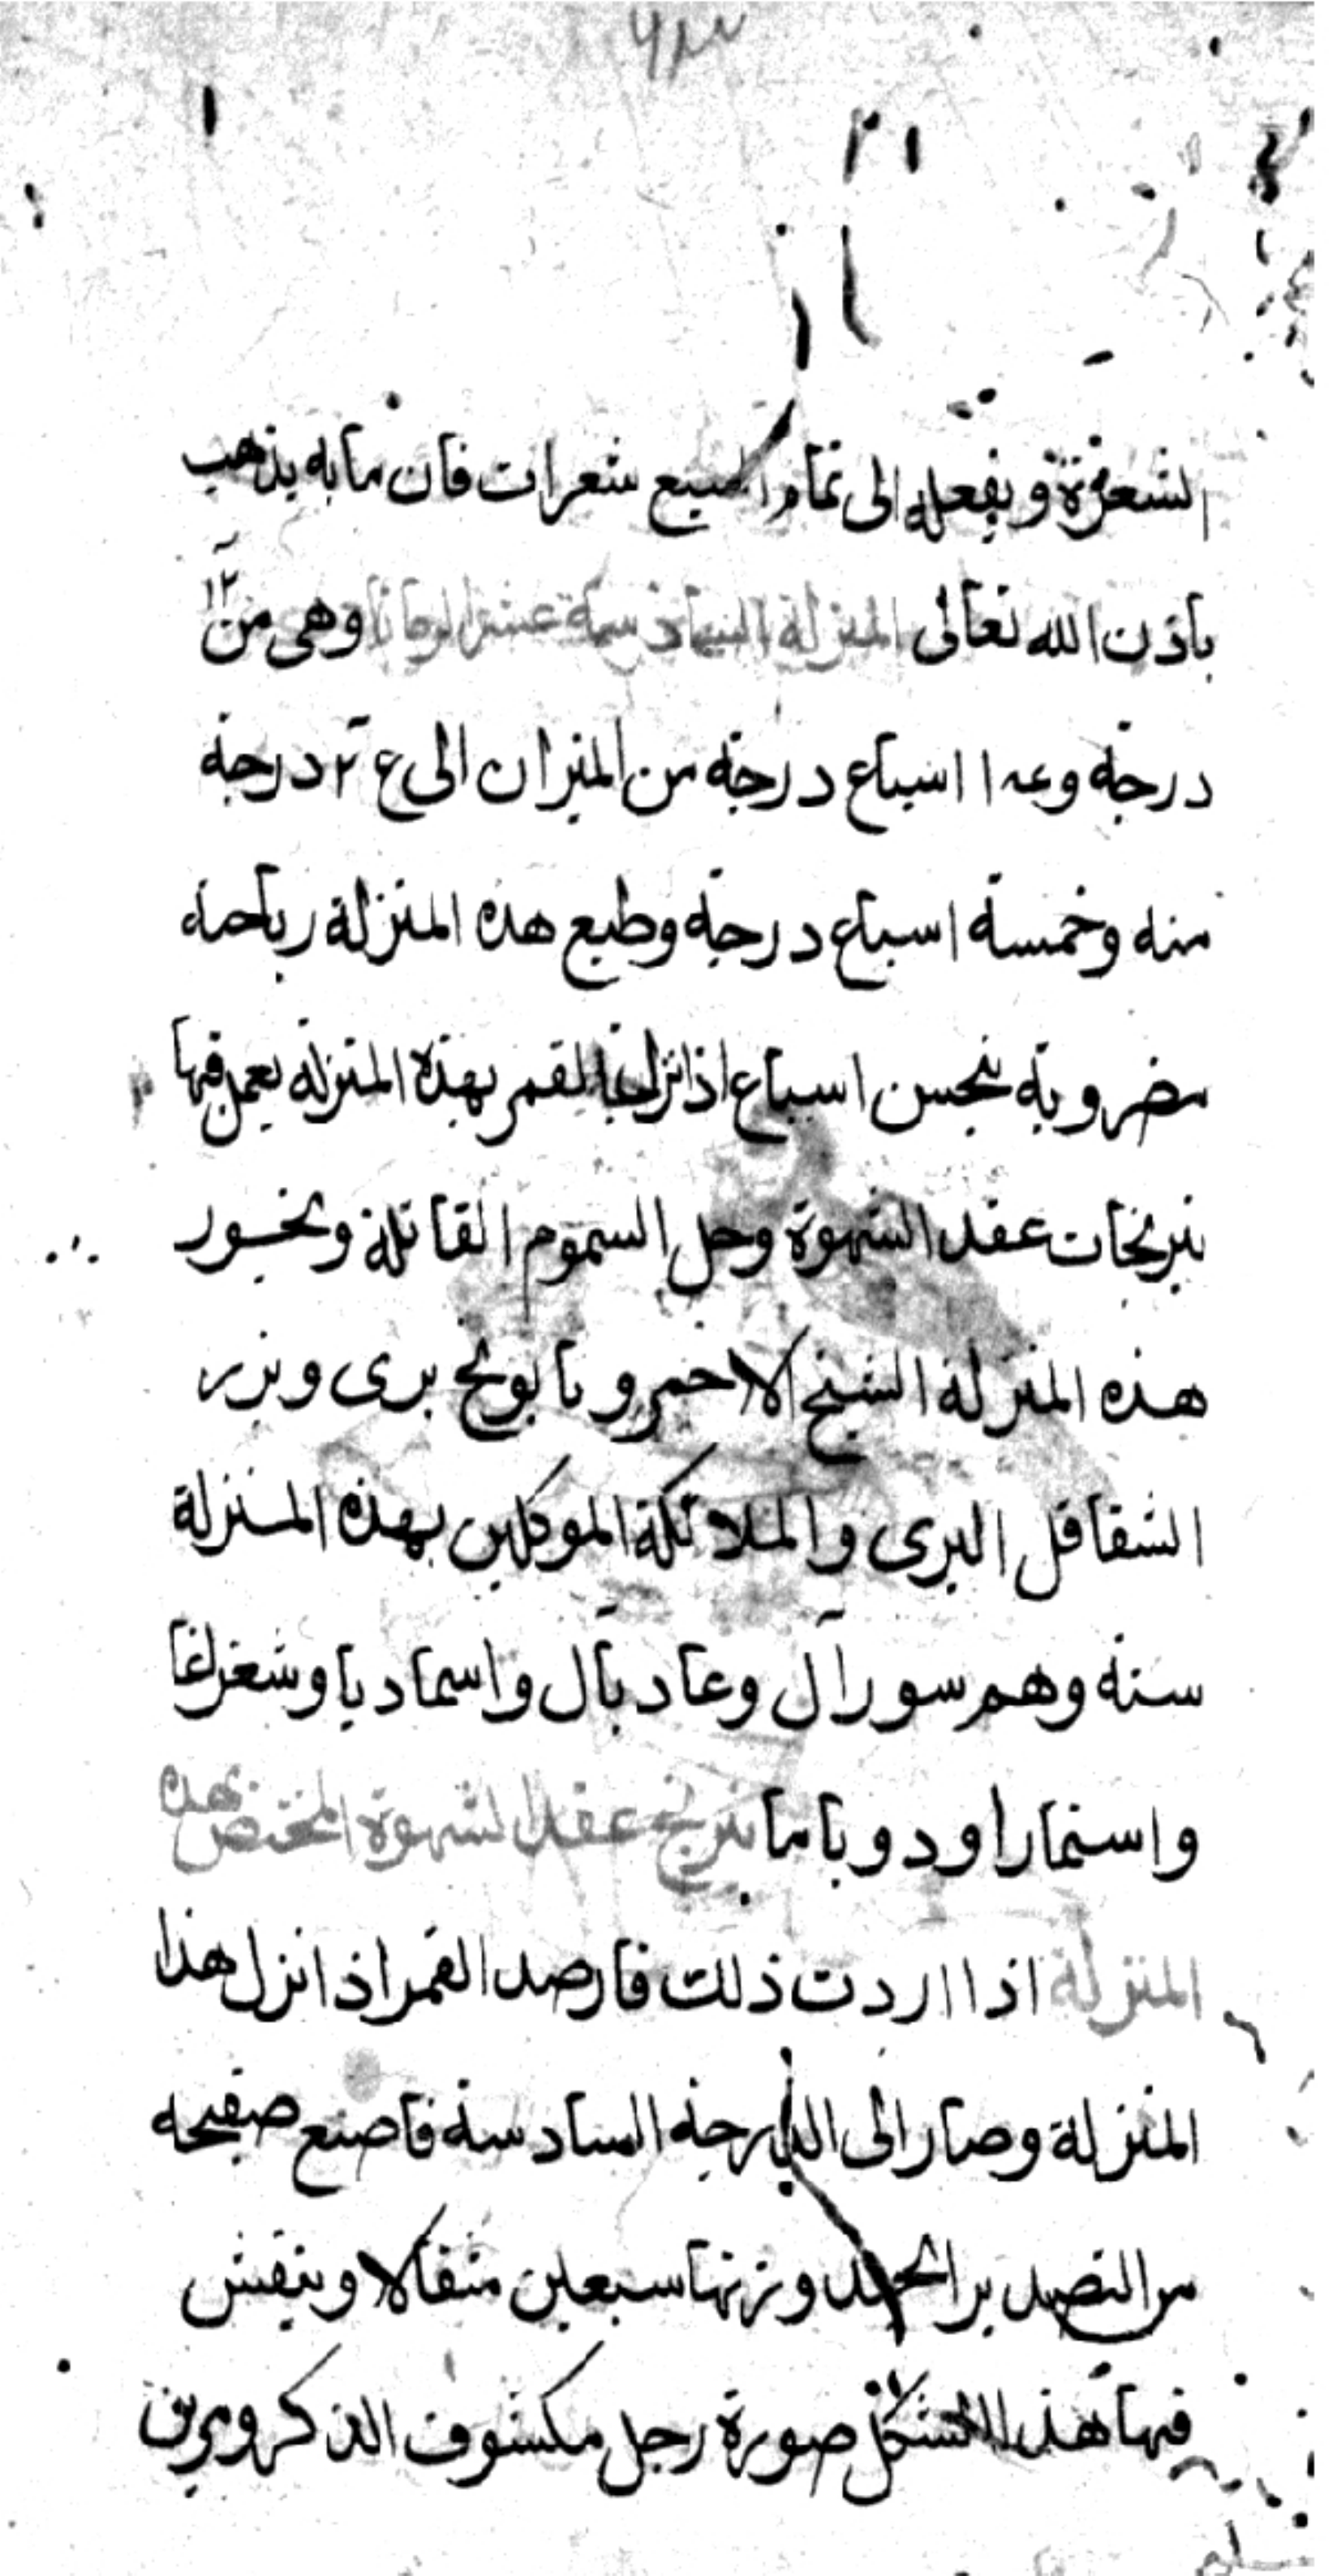 الشعرة ويفعله الى تمام السبع شعرات فان ما به يذهب
باذن الله تعالى المنزلة السادسة عشر الزبانا وهى من ١٢
درجة و اسباع درجة من الميزان الى درجة
منه وخمسة اسباع درجة وطبع هذه المنزلة رياحة
مضروبة بنحس اسباع اذا نزلها القمر بهذه المنزلة يعمل فيها
نيرنجات عقد الشهوة وحل السموم القاتلة وبخور
هذه المنزلة الشيح الاحمر و بابونج برى وبزر
الشقاقل البرى والملائكة الموكلين بهذه المنزلة
ستة وهم سورآل وعاديآل واسماديا وشغراغا
واستماراود ودياما نيرنج عقد الشهوة المختص بهذه
المنزلة اذا اردت ذلك فارصد القمر اذا نزل هذا
المنزلة وصار الى الدرجة السادسة فاصنع صفيحة
من القصدير الجيد وزنها سبعين مثقالا وينقش
فيها هذا الشكل صورة رجل مكشوف الذكر وبين